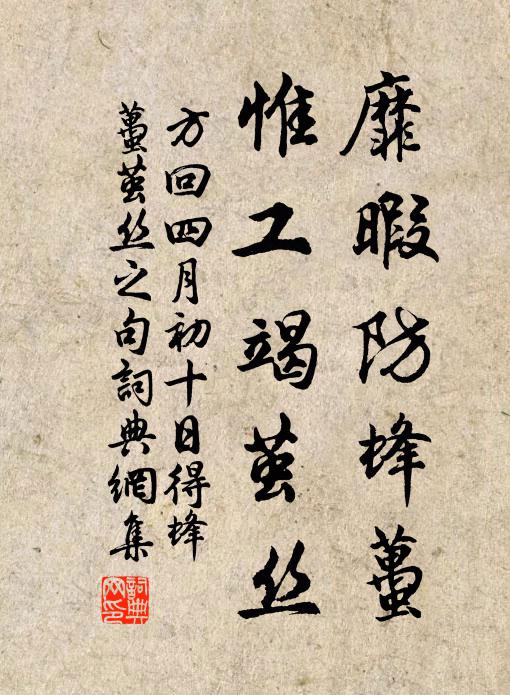 靡暇防蜂蠆
惟工竭茧丝
方回四月初十日得蜂
蠆茧丝之句詞典網集
詞典網印